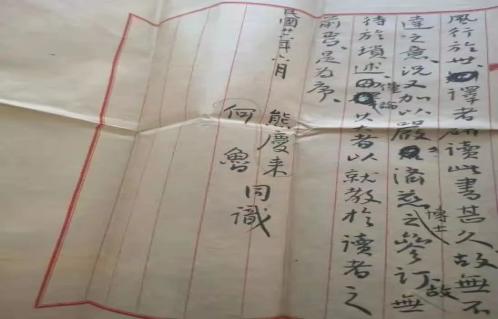 風行於世譯者研讀此書甚久故無不
達之意況又加以嚴濟慈博士之參訂故無
待於瑣述大者以就教於讀者之
前焉是為序
民國月
熊慶來
何魯
同識